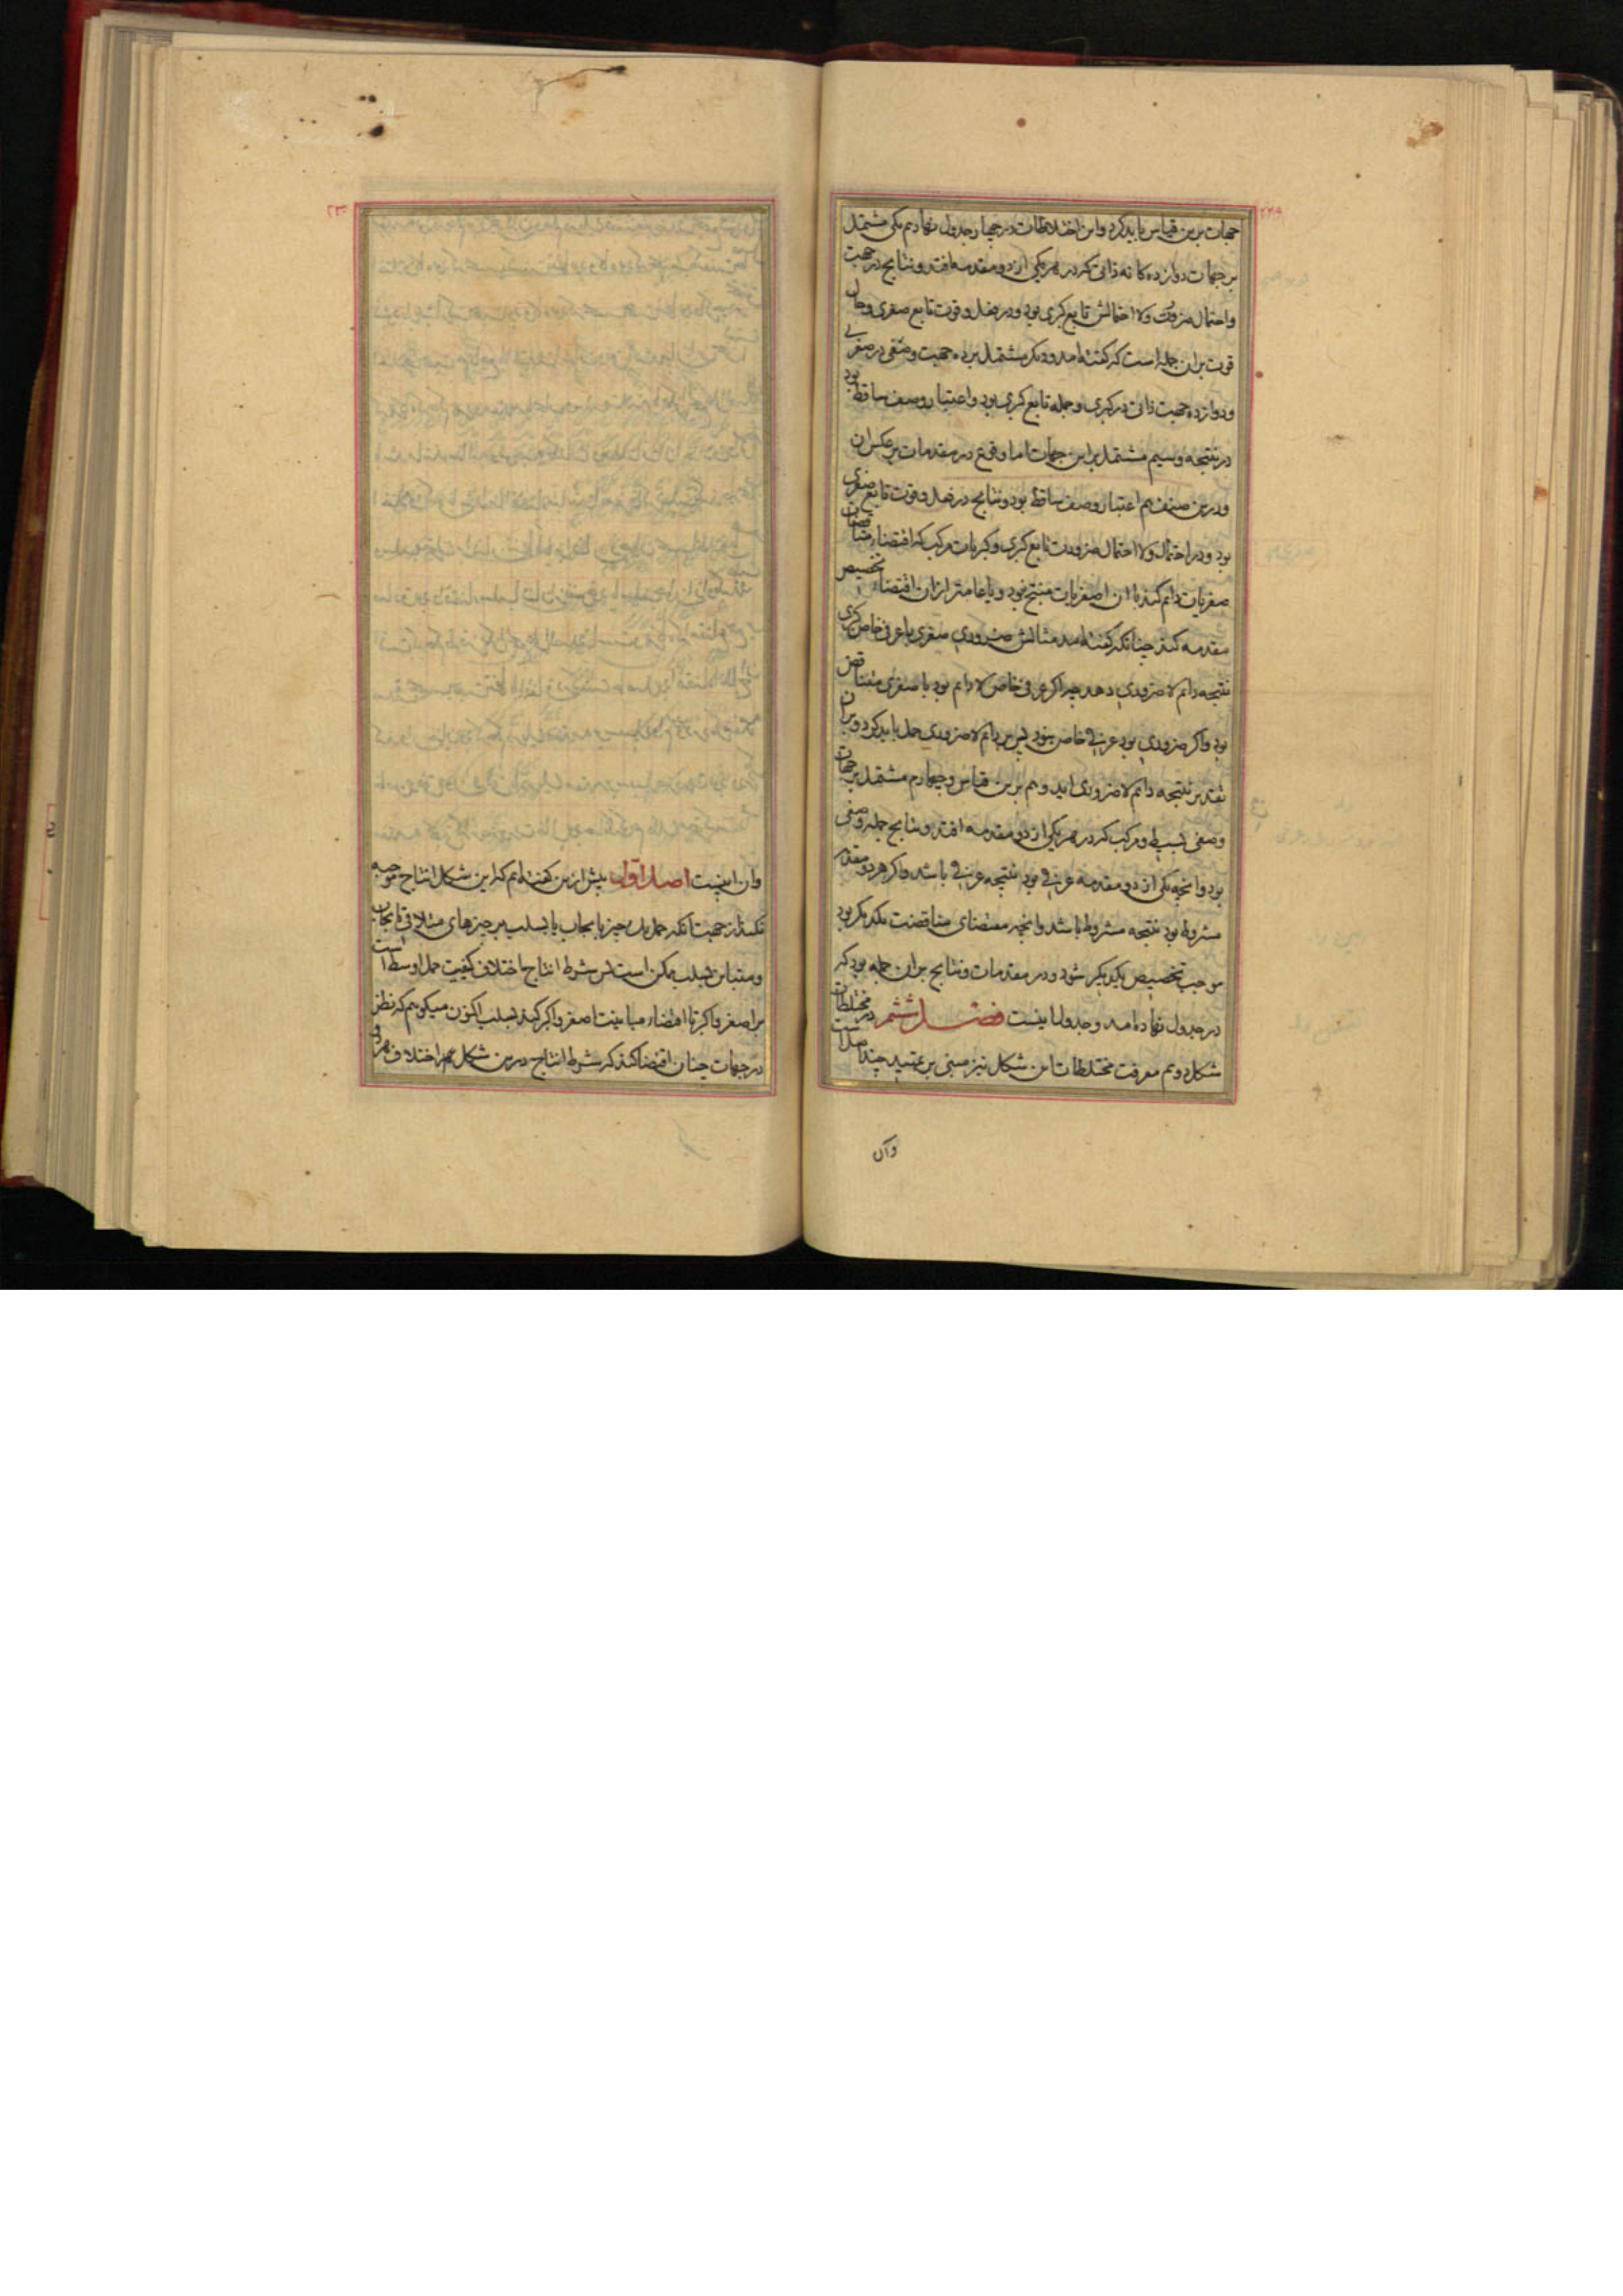 ۲۲۹
جهات برین قیاس باید کرد و این اختلاطات در چهار جدول نهادیم یکی مشتمل
بر جهات دوازده کانه ذاتی که در هر یکی از دو مقدمه افتد و نتایج در جهت
واحتمال ضرورت ولا احتمالش تابع کبری بود و در فعل و قوت تابع صغری وحال
قوت بران جمله است که کفته امد و دیکر مشتمل بر ده جهت وصفی در صغری
ودوازده جهت ذاتی در کبری و جمله تابع کبری بود و اعتبار وصف ساقط بود
در نتیجه وسیم مشتمل بر این جهات اما وقوع در مقدمات بر عکس ان
ودرین صنف هم اعتبار وصف ساقط بود و نتایج در فعل و قوت تابع صغری
بود ودر احتمال ولا احتمال ضرورت تابع کبری وکبریات مرکب که اقتضاء مناقضات
صغریات دایم کند با ان اصغریات منتج نبود و یا عامتر ازان اقتضاء تخصیص
مقدمه کند چنانکه کفته امد مثالش ضروری صغری با عرفی خاص کبری
نتیجه دایم لا ضروری دهد چه اکر عرفی خاص لا دایم بود با صغری متناقض
بود واکر ضروری بود عرفی خاص نبود پس بر دایم لا ضروری حمل باید کرد وبران
تقدیر نتیجه دایم لا ضروری اید وهم برین قیاس وچهارم مشتمل بر جهات
وصفی بسیط ومرکب که در هر یکی از دو مقدمه افتد ونتایج جمله وصفی
بود وانچه یکی از دو مقدمه عرفی بود نتیجه عرفی باشد واکر هر دو مقدمه
مشروط بود نتیجه مشروط باشد وانچه مقتضای مناقضت یکدیکر بود
موجب تخصیص یکدیکر شود و در مقدمات ونتایج بران جمله بود که
در جدول نهاده امد وجدول اینست فصل ششم در مختلطات
شکل دویم معرفت مختلطات این شکل نیز مبنی بر تمهید چند اصل است
وآن
۲۳۰
وان اینست اصل اول پیش ازین کفته ایم که این شکل انتاج موجبه
نکند از جهت آنکه حمل یک چیز بایجاب یا بسلب بر چیزهای متلاقی بایجاب
ومتباین بسلب ممکن است پس شرط انتاج اختلاف کیفیت حمل اوسط است
بر اصغر واکبر تا اقتضاء مباینت اصغر واکبر کند بسلب اکنون میکوییم که نظر
در جهات چنان اقتضا کند که شرط انتاج درین شکل هم اختلاف